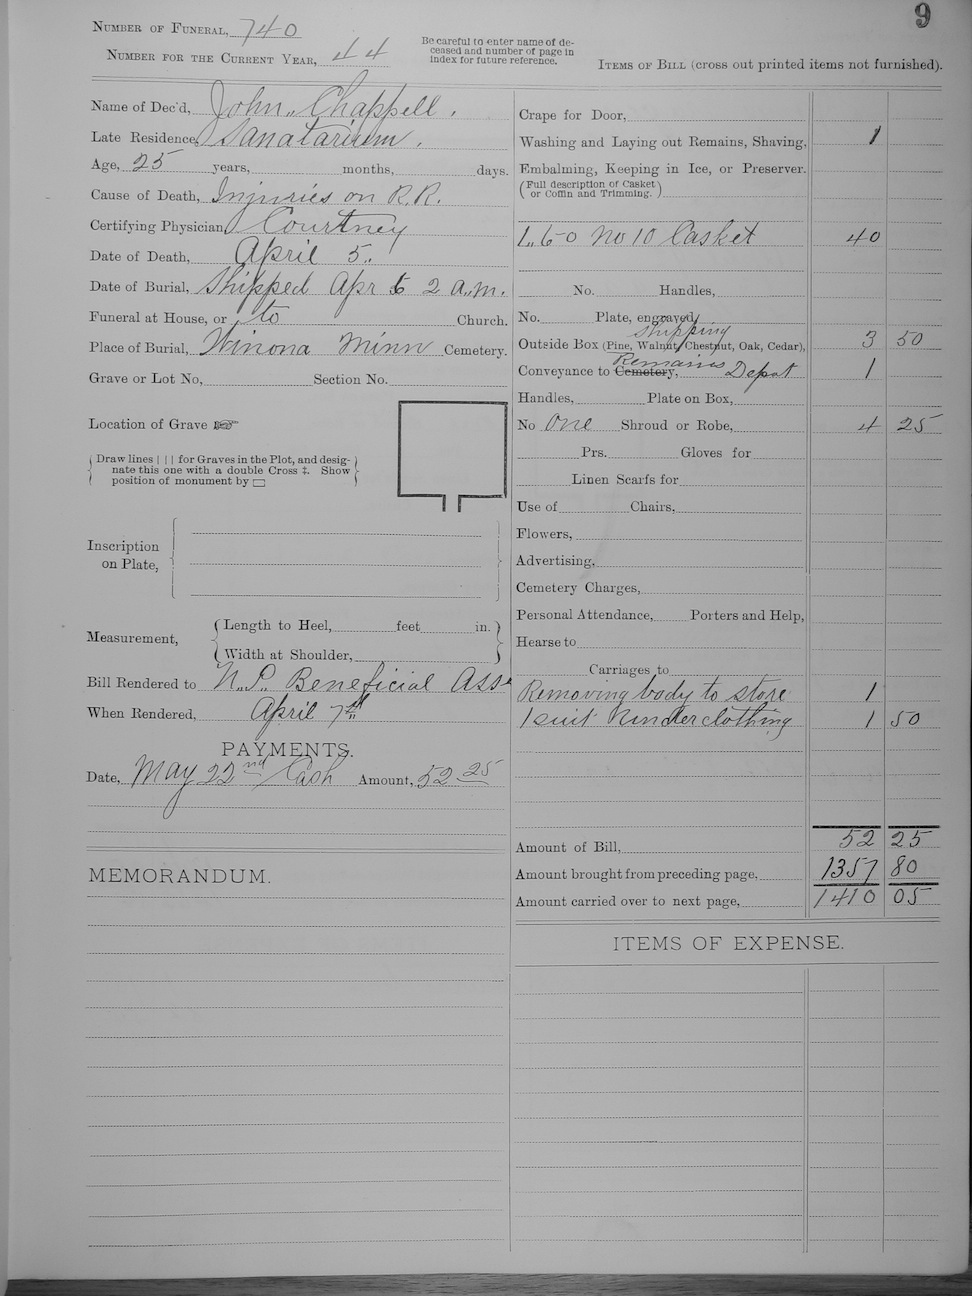 9
Number of Funeral, 740
Number for the Current Year, 44
Be careful to enter name of de-
ceased and number of page in
index for future reference.
Items of Bill (cross out printed items not furnished).
Name of Dec'd, John Chappell.
Late Residence, Sanatarium.
Age, 25 years, months, days.
Cause of Death, Injuries on R.R.
Certifying Physician Courtney
Date of Death, April 5.
Date of Burial, Shipped Apr 6 2 a.m.
Funeral at House, or to Church.
Place of Burial, Winona Minn Cemetery.
Grave or Lot No, Section No.
Location of Grave
Draw lines | | | for Graves in the Plot, and desig-
nate this one with a double Cross ‡. Show
position of monument by
Inscription
on Plate,
Measurement,
Length to Heel, feet in.
Width at Shoulder,
Bill Rendered to N.P. Beneficial Ass
When Rendered, April 7th
PAYMENTS.
Date, May 22nd Cash Amount, 52 25
MEMORANDUM.
Crape for Door,
Washing and Laying out Remains, Shaving, 1
Embalming, Keeping in Ice, or Preserver.
(Full description of Casket
or Coffin and Trimming.)
No 10 Casket 40
No. Handles,
No. Plate, engraved
Shipping
Outside Box (Pine, Walnut, Chestnut, Oak, Cedar), 3 50
Remains
Conveyance to Cemetery, Depot 1
Handles, Plate on Box,
No One Shroud or Robe, 4 25
Prs. Gloves for
Linen Scarfs for
Use of Chairs,
Flowers,
Advertising,
Cemetery Charges,
Personal Attendance, Porters and Help,
Hearse to
Carriages to
Removing body to store 1
1 suit underclothing 1 50
Amount of Bill, 52 25
Amount brought from preceding page, 1357 80
Amount carried over to next page, 1410 05
ITEMS OF EXPENSE.